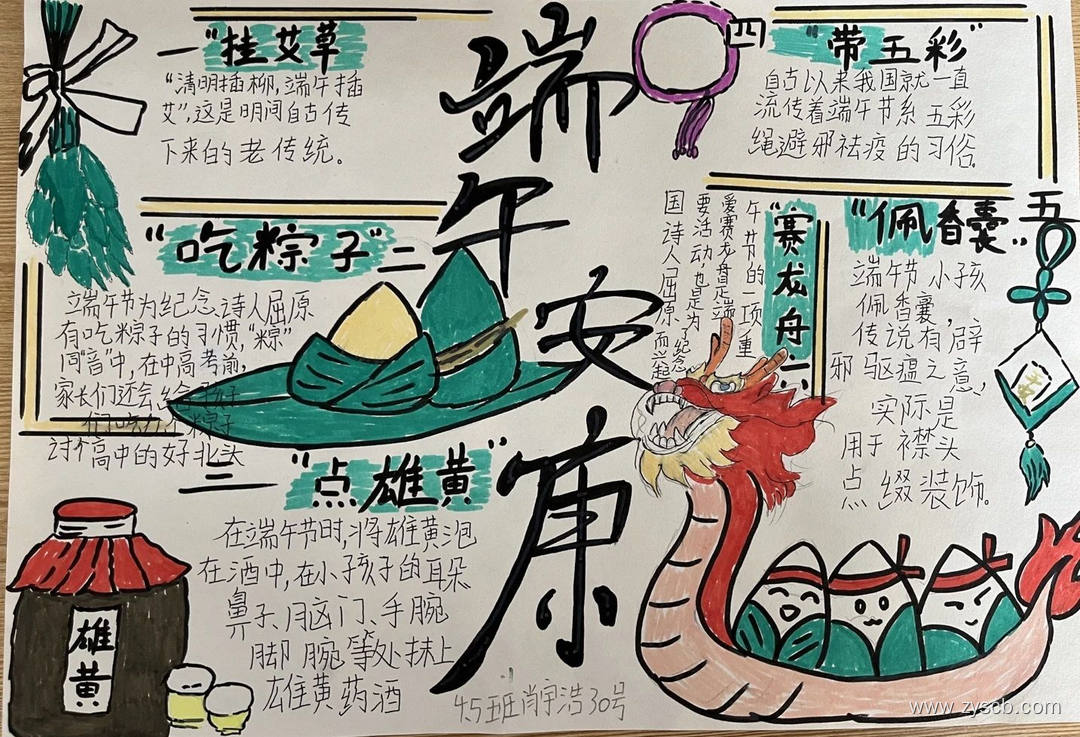 端午安康
一"挂艾草"
"清明插柳,端午插
艾",这是明间自古传
下来的老传统。
"吃粽子"二
端午节为纪念诗人屈原
有吃粽子的习惯,"粽"
同"音"中,在中高考前,
家长们还会给孩子
们吃
粽子
讨个高中的好兆头
三"点雄黄"
在端午节时,将雄黄泡
在酒中,在小孩子的耳朵
鼻子、脑门、手腕
脚腕等处抹上
雄黄药酒
雄黄
四"带五彩"
自古以来我国就一直
流传着端午节系五彩
绳避邪祛疫的习俗.
五
"佩香囊"
端午节小孩
佩香囊,
传说有辟
邪驱瘟之意,
实际是
用于襟头
点缀装饰.
"赛龙舟"六
午节的一项重
爱赛龙舟是端
要活动也是为了纪念
国诗人屈原而兴起
45班肖宇浩30号
www.zyscb.com